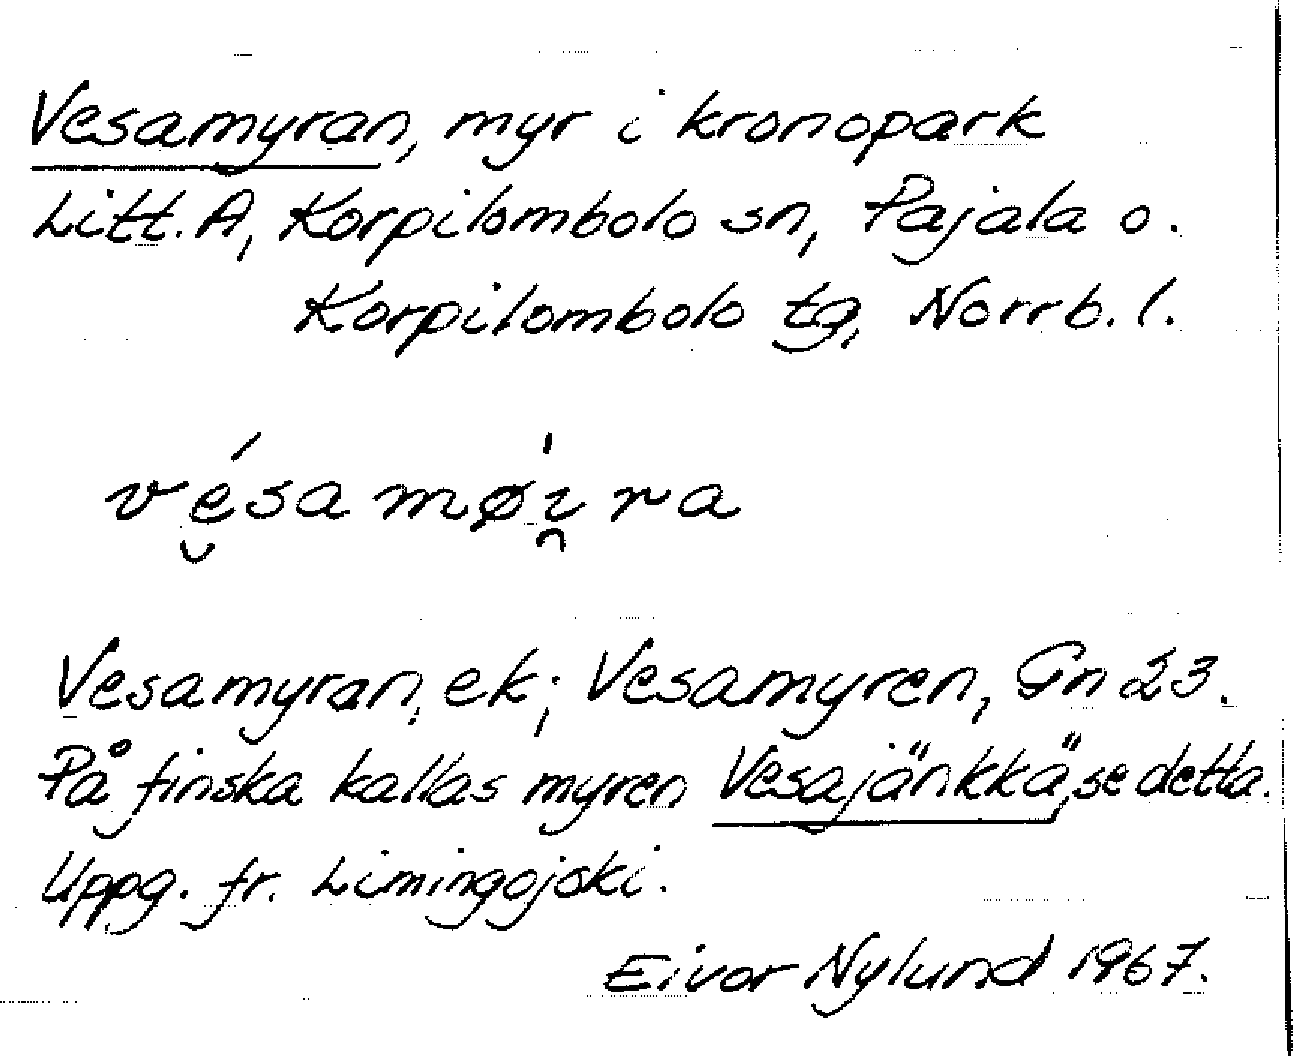 Vesamyran, myr i kronopark
Litt. A, Korpilombolo sn, Pajala o.
Korpilombolo tg, Norrb. l.
vé̮samøı̯̍ra
Vesamyran, ek; Vesamyren, Gn 23.
På finska kallas myren Vesajänkkä, se detta.
Uppg. fr. Limingojoki.
Eivor Nylund 1967.